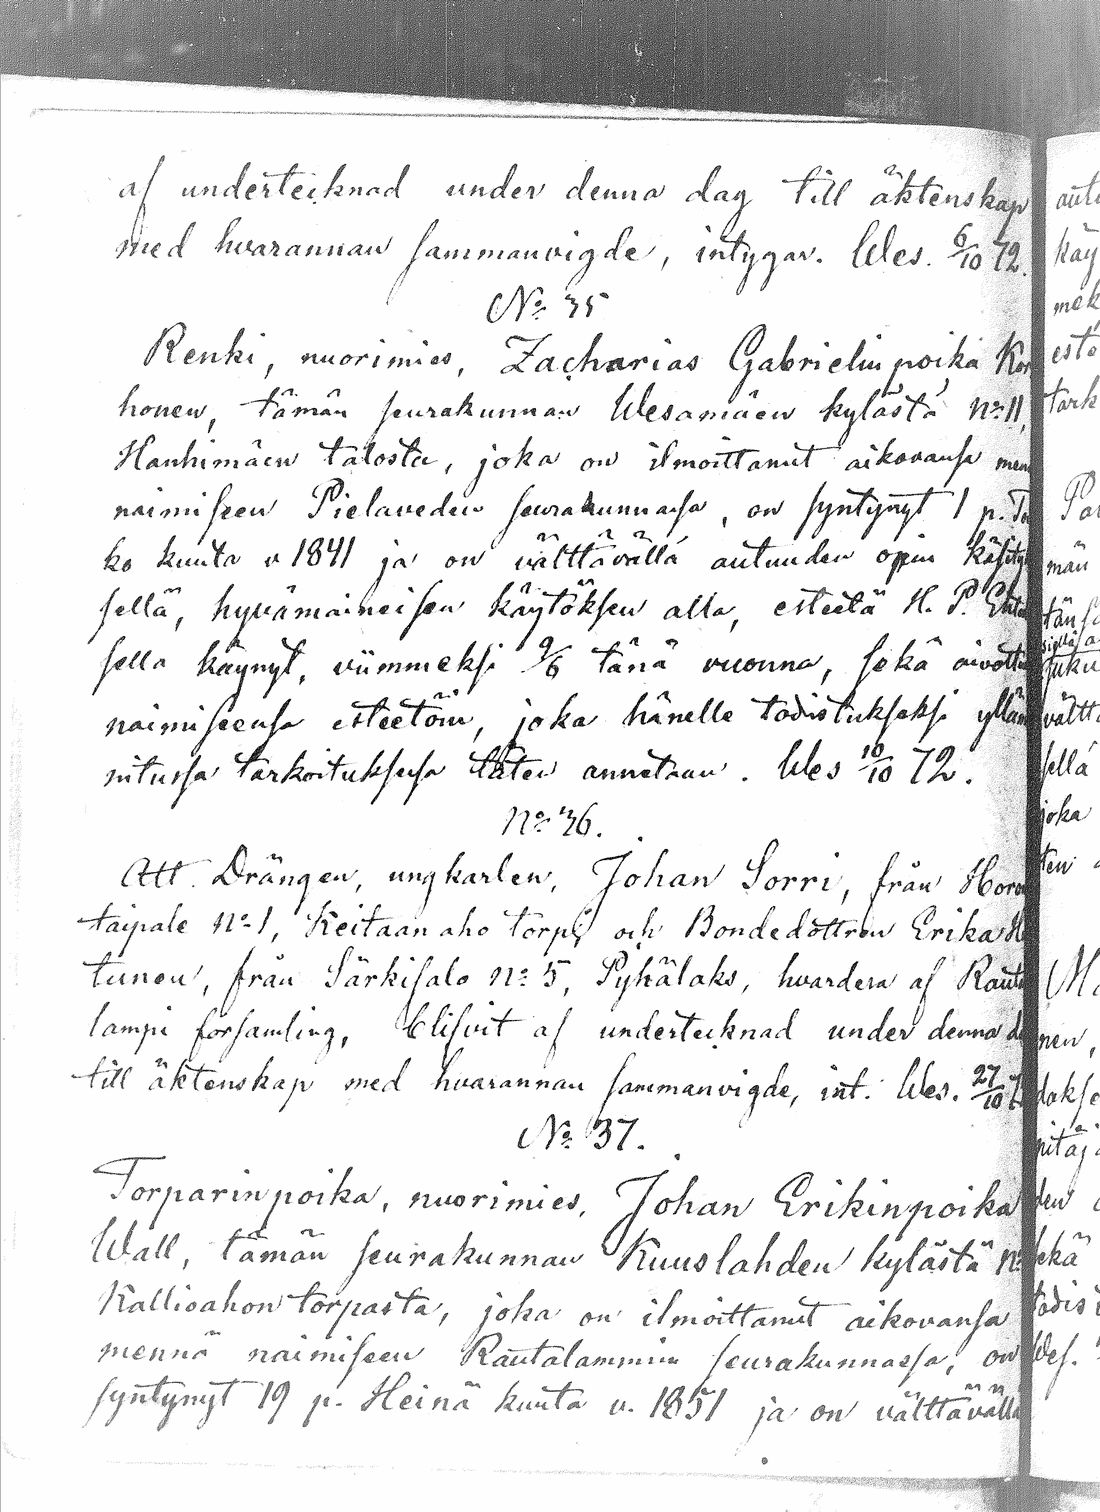 af underteiknad under denna dag till äktenskap
med hvarannan sammanvigde, intygar. Wes. 6/10 72.
No 35
Renki, nuorimies, Zacharias Gabrielin poika Kor
honen, tämän seurakunnan Wesamäen kylästä No 11,
Hanhimäen talosta, joka on ilmoittanut aikovansa men
naimiseen Pielaveden seurakunnassa, on syntynyt 1 p. To
ko kuuta v 1841 ja on välttävällä autuuden opin käsity
sellä, hyvämaineisen käytöksen alla, esteetä H. P. Ehto
sella käynyt, viimmeksi 9/6 tänä vuonna, sekä aivotti
naimiseensa esteetöin, joka hänelle todistukseksi yllä
nitussa tarkoituksessa täten annetaan. Wes 10/10 72.
No 36.
Att Drängen, ungkarlen, Johan Sorri, från Hon
taipale No 1, Keitaanaho torp, och Bondedottren Erika H
tunen, från Särkisalo No 5, Pyhälaks, hvardera af Raut
lampi församling, blifvit af underteiknad under denna d
till äktenskap med hvarannan sammanvigde, int. Wes. 27/10 7
No 37.
Torparinpoika, nuorimies, Johan Erikinpoika
Wall, tämän seurakunnan Kuuslahden kylästä No
Kallioahon torpasta, joka on ilmoittanut aikovansa
mennä naimiseen Rautalammin seurakunnassa, on
syntynyt 19 p. Heinä kuuta v. 1851 ja on välttävällä